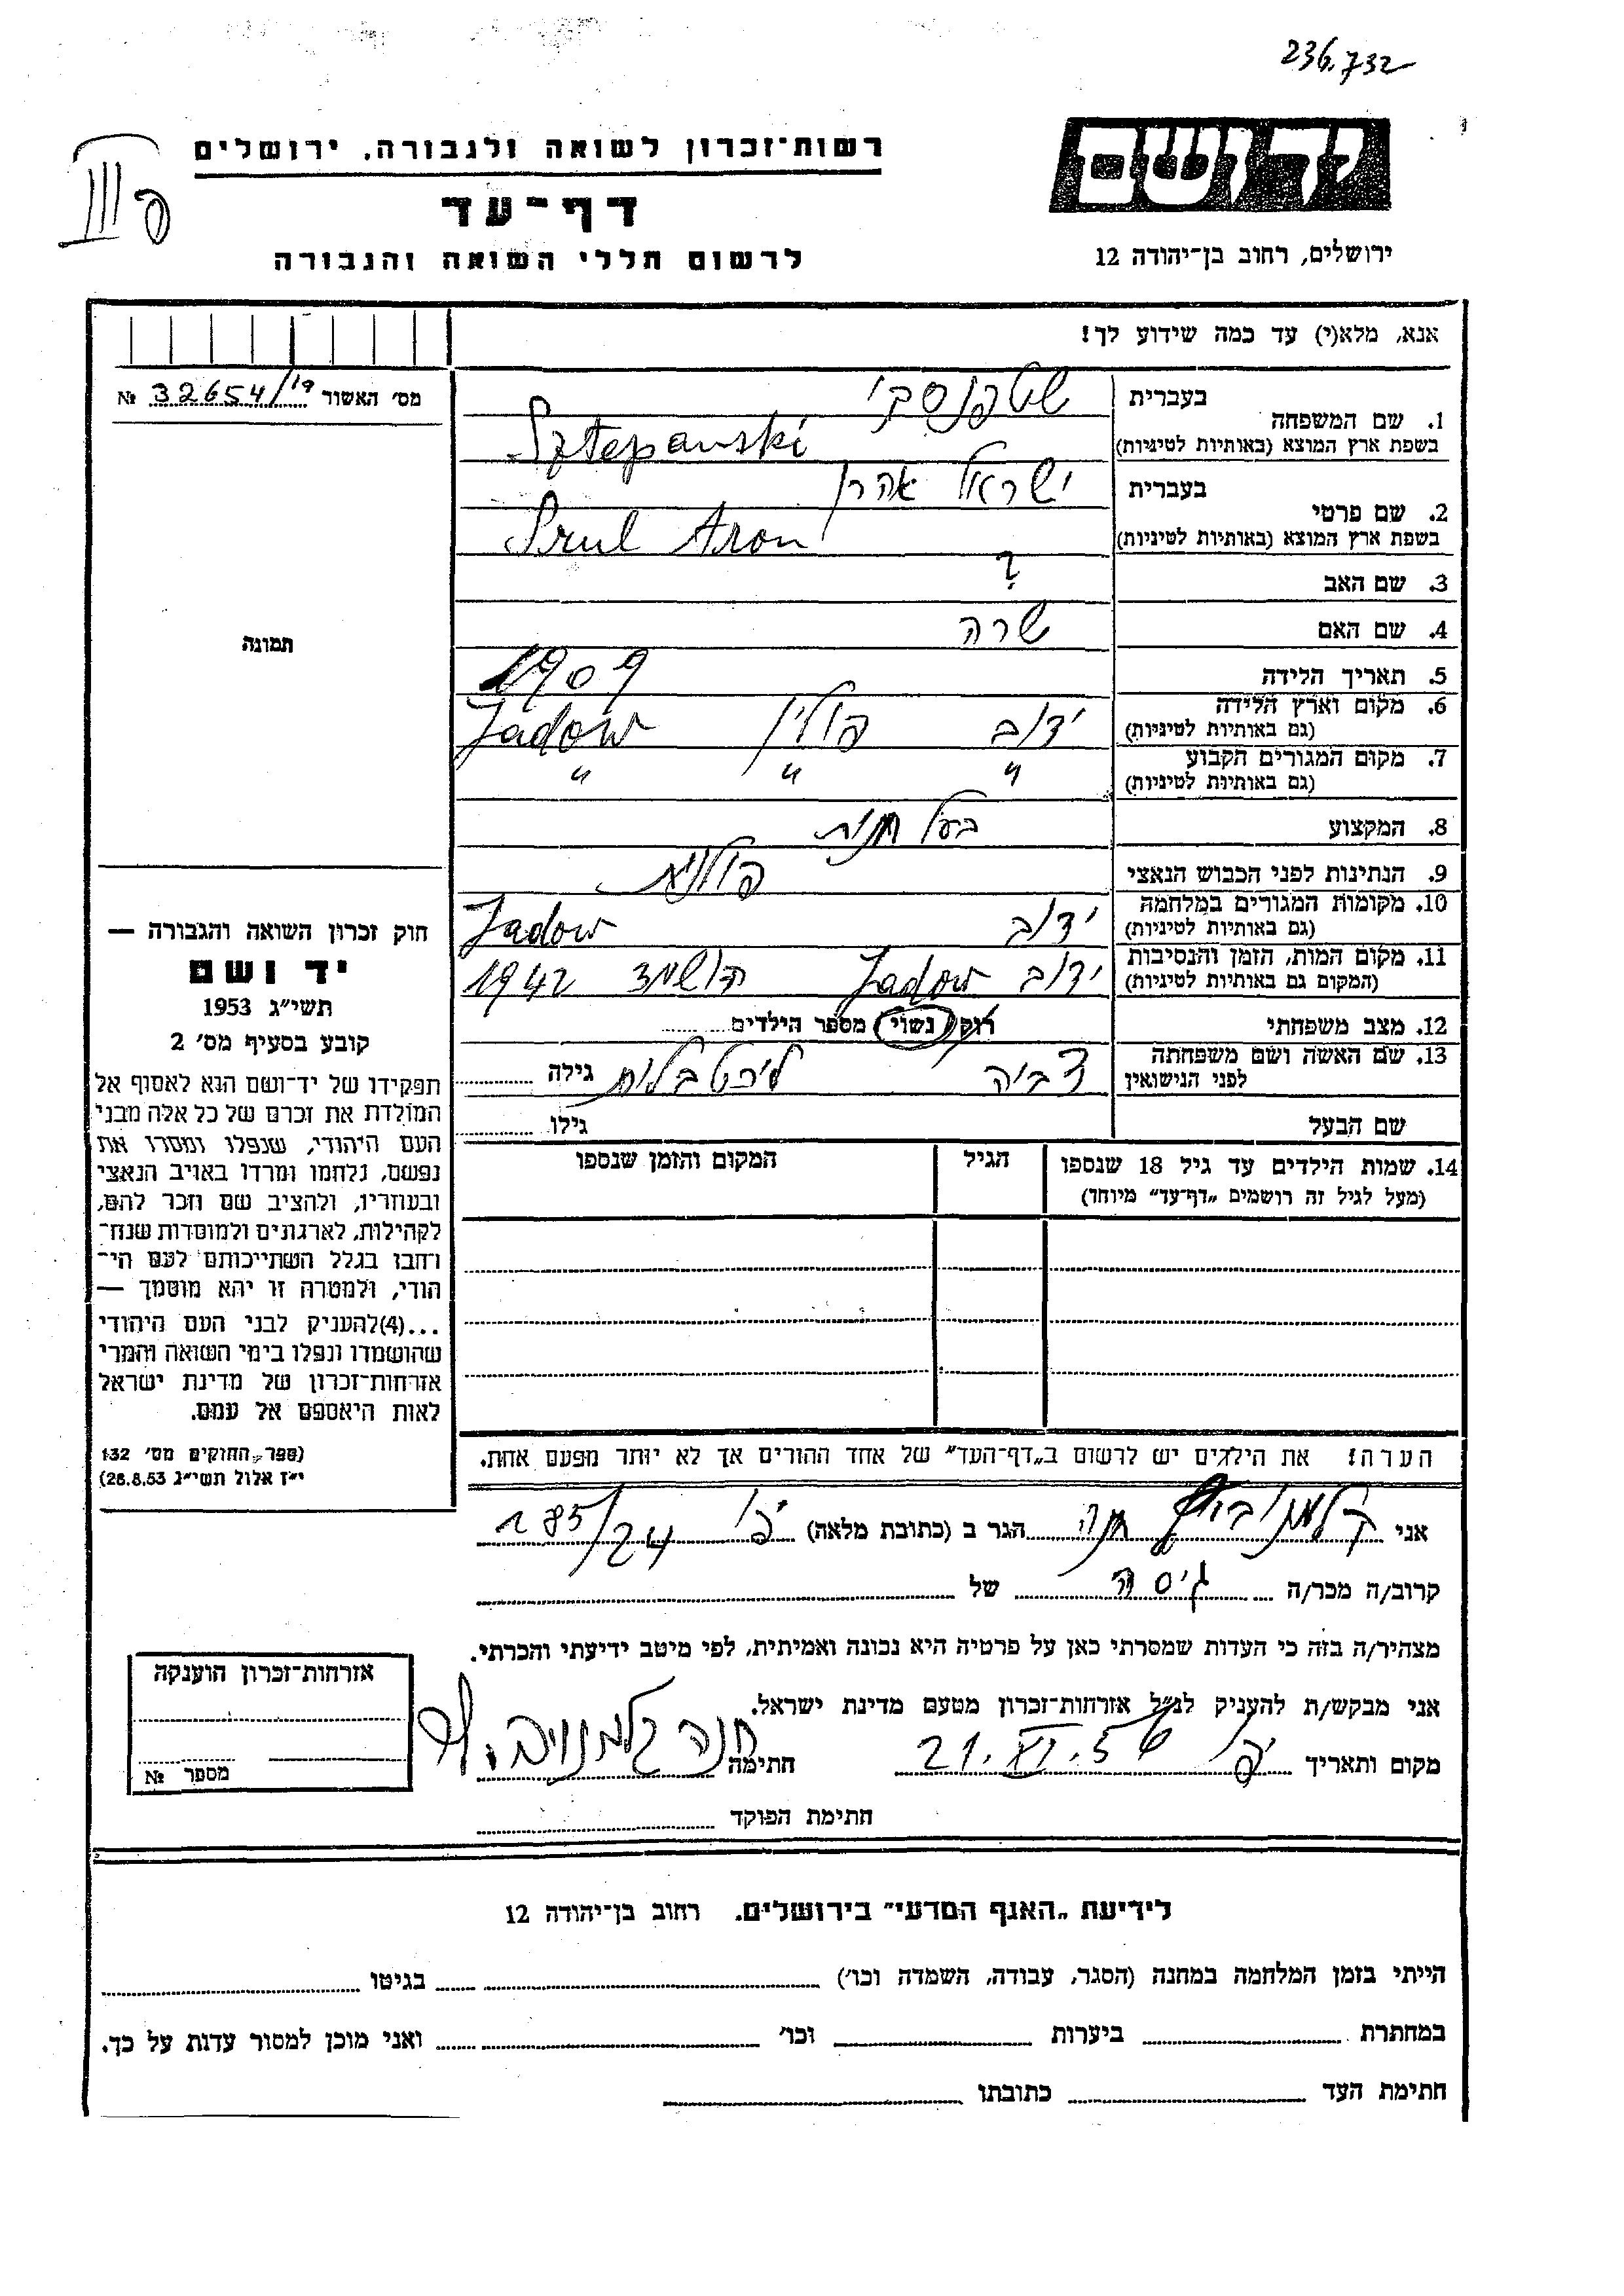 236.732
יד ושם
רשות־זכרון לשואה ולגבורה, ירושלים
דף־עד
לרשום חללי השואה והגבורה
פ III
ירושלים, רחוב בן־יהודה 12
אנא, מלא(י) עד כמה שידוע לך!
מס׳ האשור 32654/ №
1. שם המשפחה
בעברית שטפנסקי
בשפת ארץ המוצא (באותיות לטיניות) Sztepanski
2. שם פרטי
בעברית ישראל אהרן
בשפת ארץ המוצא (באותיות לטיניות) Srul Aron
3. שם האב ?
4. שם האם שרה
5. תאריך הלידה 1909
6. מקום וארץ הלידה
(גם באותיות לטיניות) ידוב פולין Jadow
7. מקום המגורים הקבוע
(גם באותיות לטיניות) " " "
8. המקצוע בעל חנות
9. הנתינות לפני הכבוש הנאצי פולנית
10. מקומות המגורים במלחמה
(גם באותיות לטיניות) ידוב Jadow
11. מקום המות, הזמן והנסיבות
(המקום גם באותיות לטיניות) ידוב Jadow הושמד 1942
12. מצב משפחתי רוק נשוי מספר הילדים
13. שם האשה ושם משפחתה
לפני הנישואין צביה גילה
שם הבעל גילו
14. שמות הילדים עד גיל 18 שנספו
(מעל לגיל זה רושמים „דף־עד״ מיוחד)
הגיל
המקום והזמן שנספו
תמונה
חוק זכרון השואה והגבורה —
יד ושם
תשי״ג 1953
קובע בסעיף מס׳ 2
תפקידו של יד־ושם הנא לאסוף אל
המולדת את זכרם של כל אלה מבני
העם היהודי, שנפלו ומסרו את
נפשם, נלחמו ומרדו באויב הנאצי
ובעוזריו, ולהציב שם וזכר להם,
לקהילות, לארגונים ולמוסדות שנח־
רחבו בגלל השתייכותם לעם הי־
הודי, ולמטרה זו יהא מוסמך —
...(4)להעניק לבני העם היהודי
שהושמדו ונפלו בימי השואה והמרי
אזרחות־זכרון של מדינת ישראל
לאות היאספם אל עמם.
(ספר „החוקים מס׳ 132
י״ז אלול תשי״ג 28.8.53)
הערה! את הילדים יש לרשום ב„דף־העד״ של אחד ההורים אך לא יותר מפעם אחת.
אני קלמנוביץ חנה הגר ב (כתובת מלאה) יפו 185/24
קרוב/ה מכר/ה גיסה של
מצהיר/ה בזה כי העדות שמסרתי כאן על פרטיה היא נכונה ואמיתית, לפי מיטב ידיעתי והכרתי.
אני מבקש/ת להעניק לנ״ל אזרחות־זכרון מטעם מדינת ישראל.
מקום ותאריך יפו 21.XI.56 חתימה חנה קלמנוביץ
חתימת הפוקד
אזרחות־זכרון הוענקה
מספר №
לידיעת „האגף המדעי״ בירושלים, רחוב בן־יהודה 12
הייתי בזמן המלחמה במחנה (הסגר, עבודה, השמדה וכו׳) בגיטו
במחתרת ביערות וכו׳ ואני מוכן למסור עדות על כך.
חתימת העד כתובתו